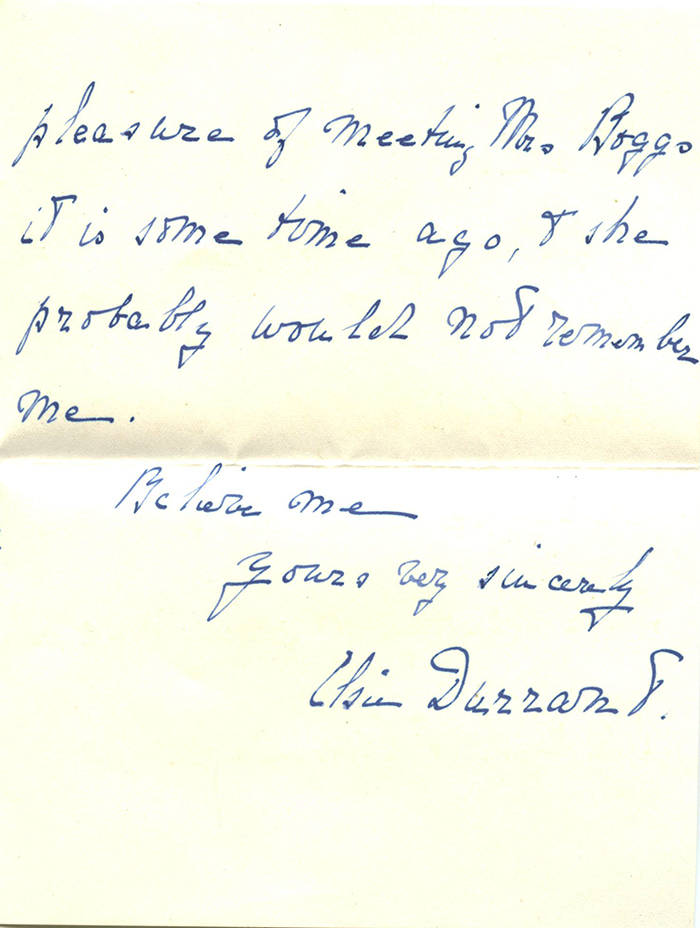 pleasure of meeting Mrs Boggs
it is some time ago, & she
probably would not remember
me.
Believe me
yours very sincerely
Elsie Durrant.